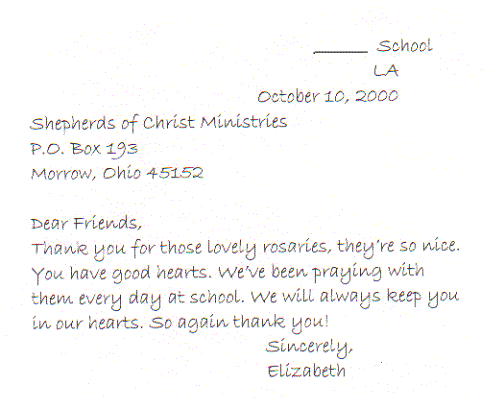 ______ School
LA
October 10, 2000
Shepherds of Christ Ministries
P.O. Box 193
Morrow, Ohio 45152
Dear Friends,
Thank you for those lovely rosaries, they're so nice.
You have good hearts. We've been praying with
them every day at school. We will always keep you
in our hearts. So again thank you!
Sincerely,
Elizabeth